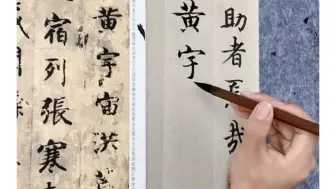 助者焉哉
黃宇
黃宇宙洪
宿列張寒
閏